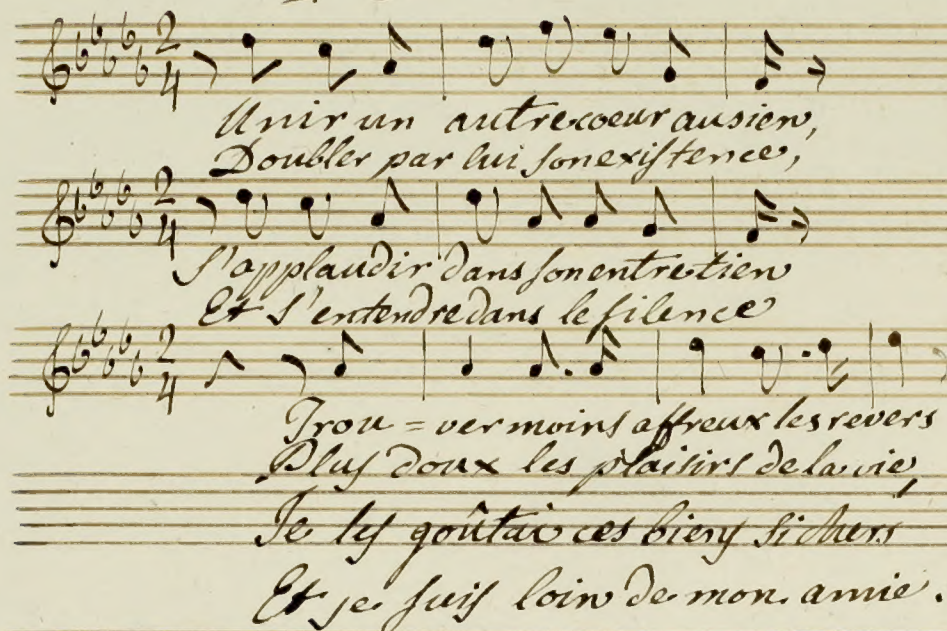 Unir un autre coeur au sien,
Doubler par lui son existence,
S'applaudir dans son entretien
Et S'entendre dans le silence
Trou = ver moins affreux les revers
Plus doux les plaisirs de la vie,
Je les goûtai ces biens si chers
Et je suis loin de mon amie.